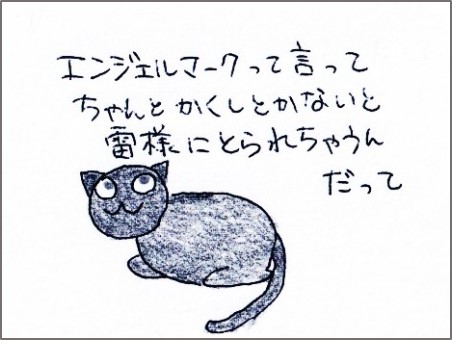 エンジェルマークって言って
ちゃんとかくしとかないと
雷様にとられちゃうん
だって